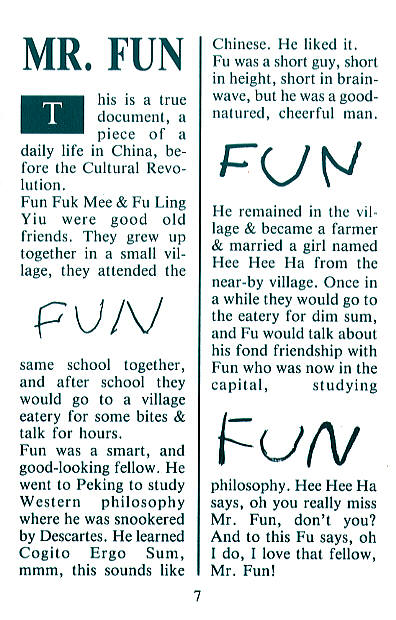 MR. FUN
This is a true
document, a
piece of a
daily life in China, be-
fore the Cultural Revo-
lution.
Fun Fuk Mee & Fu Ling
Yiu were good old
friends. They grew up
together in a small vil-
lage, they attended the
FUN
same school together,
and after school they
would go to a village
eatery for some bites &
talk for hours.
Fun was a smart, and
good-looking fellow. He
went to Peking to study
Western philosophy
where he was snookered
by Descartes. He learned
Cogito Ergo Sum,
mmm, this sounds like
Chinese. He liked it.
Fu was a short guy, short
in height, short in brain-
wave, but he was a good-
natured, cheerful man.
FUN
He remained in the vil-
lage & became a farmer
& married a girl named
Hee Hee Ha from the
near-by village. Once in
a while they would go to
the eatery for dim sum,
and Fu would talk about
his fond friendship with
Fun who was now in the
capital, studying
FUN
philosophy. Hee Hee Ha
says, oh you really miss
Mr. Fun, don't you?
And to this Fu says, oh
I do, I love that fellow,
Mr. Fun!
7